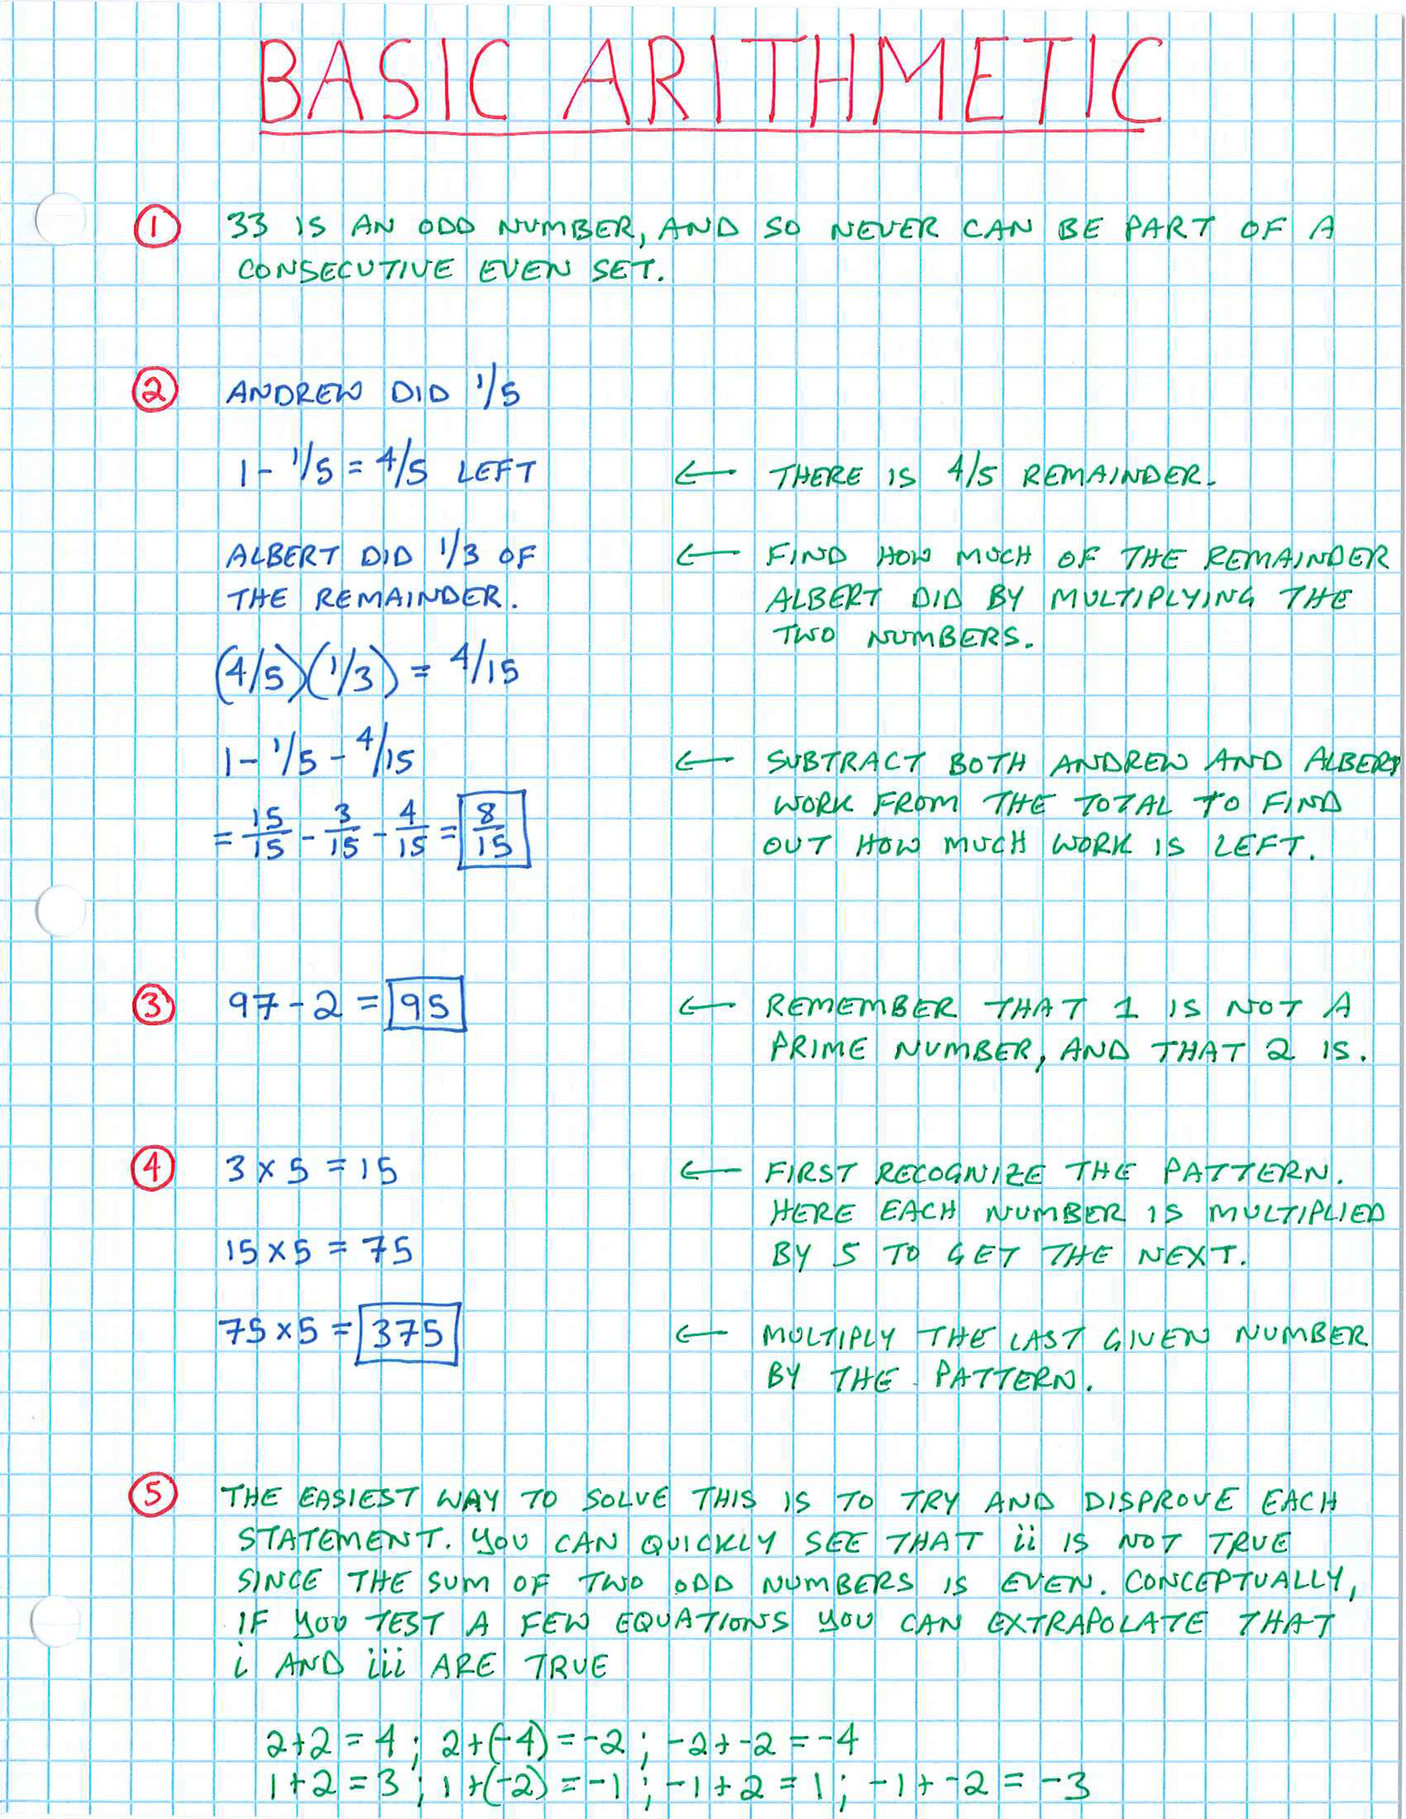 BASIC ARITHMETIC
① 33 IS AN ODD NUMBER, AND SO NEVER CAN BE PART OF A
CONSECUTIVE EVEN SET.
② ANDREW DID 1/5
1 - 1/5 = 4/5 LEFT ← THERE IS 4/5 REMAINDER.
ALBERT DID 1/3 OF ← FIND HOW MUCH OF THE REMAINDER
THE REMAINDER. ALBERT DID BY MULTIPLYING THE
TWO NUMBERS.
(4/5)(1/3) = 4/15
1 - 1/5 - 4/15 ← SUBTRACT BOTH ANDREW AND ALBERT
WORK FROM THE TOTAL TO FIND
= 15/15 - 3/15 - 4/15 = 8/15 OUT HOW MUCH WORK IS LEFT.
③ 97 - 2 = 95 ← REMEMBER THAT 1 IS NOT A
PRIME NUMBER, AND THAT 2 IS.
④ 3 x 5 = 15 ← FIRST RECOGNIZE THE PATTERN.
HERE EACH NUMBER IS MULTIPLIED
15 x 5 = 75 BY 5 TO GET THE NEXT.
75 x 5 = 375 ← MULTIPLY THE LAST GIVEN NUMBER
BY THE PATTERN.
⑤ THE EASIEST WAY TO SOLVE THIS IS TO TRY AND DISPROVE EACH
STATEMENT. YOU CAN QUICKLY SEE THAT ii IS NOT TRUE
SINCE THE SUM OF TWO ODD NUMBERS IS EVEN. CONCEPTUALLY,
IF YOU TEST A FEW EQUATIONS YOU CAN EXTRAPOLATE THAT
i AND iii ARE TRUE
2+2 = 4 ; 2+(-4) = -2 ; -2+-2 = -4
1+2 = 3 ; 1+(-2) = -1 ; -1+2 = 1 ; -1+-2 = -3